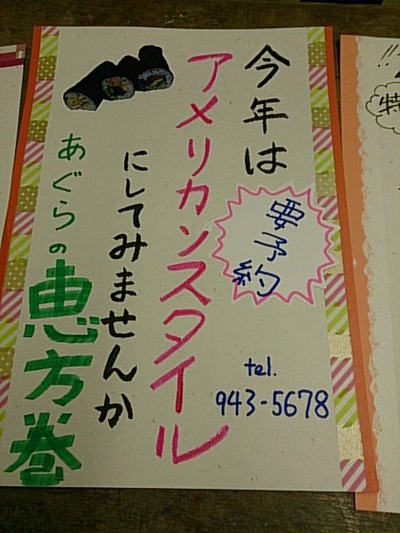 今年は
アメリカンスタイル
にしてみませんか
あぐらの恵方巻
要予約
tel.
943-5678